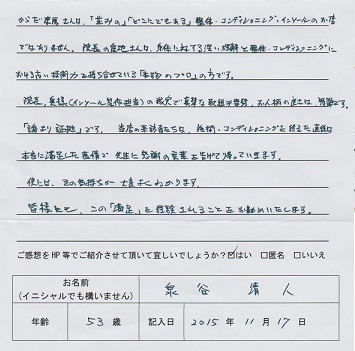 からだ農園さんは、「並みの」「どこにでもある」整体・コンディショニング・インソールのお店
ではありません。院長の 地さんは、身体に対する深い理解と整体・コンディショニングに
おける高い技術力を持ち合わせている「本物のプロ」の方です。
院長、奥様(インソール製作担当)の 実で真摯な取組み姿勢、お人柄の良さは、 です。
「論より証拠」です。 当店の来訪者たちは、施術・コンディショニングを終えた直後は
本当に満足した表情で先生に感謝の言葉を告げて帰っていきます。
僕には、その気持ちが一番よくわかります。
皆様にも、この「満足」を経験されることをお勧めいたします。
ご感想をHP等でご紹介させて頂いて宜しいでしょうか?☑はい □匿名 □いいえ
お名前
(イニシャルでも構いません)
泉谷 清人
年齢 53 歳 記入日 2015 年 11 月 17 日